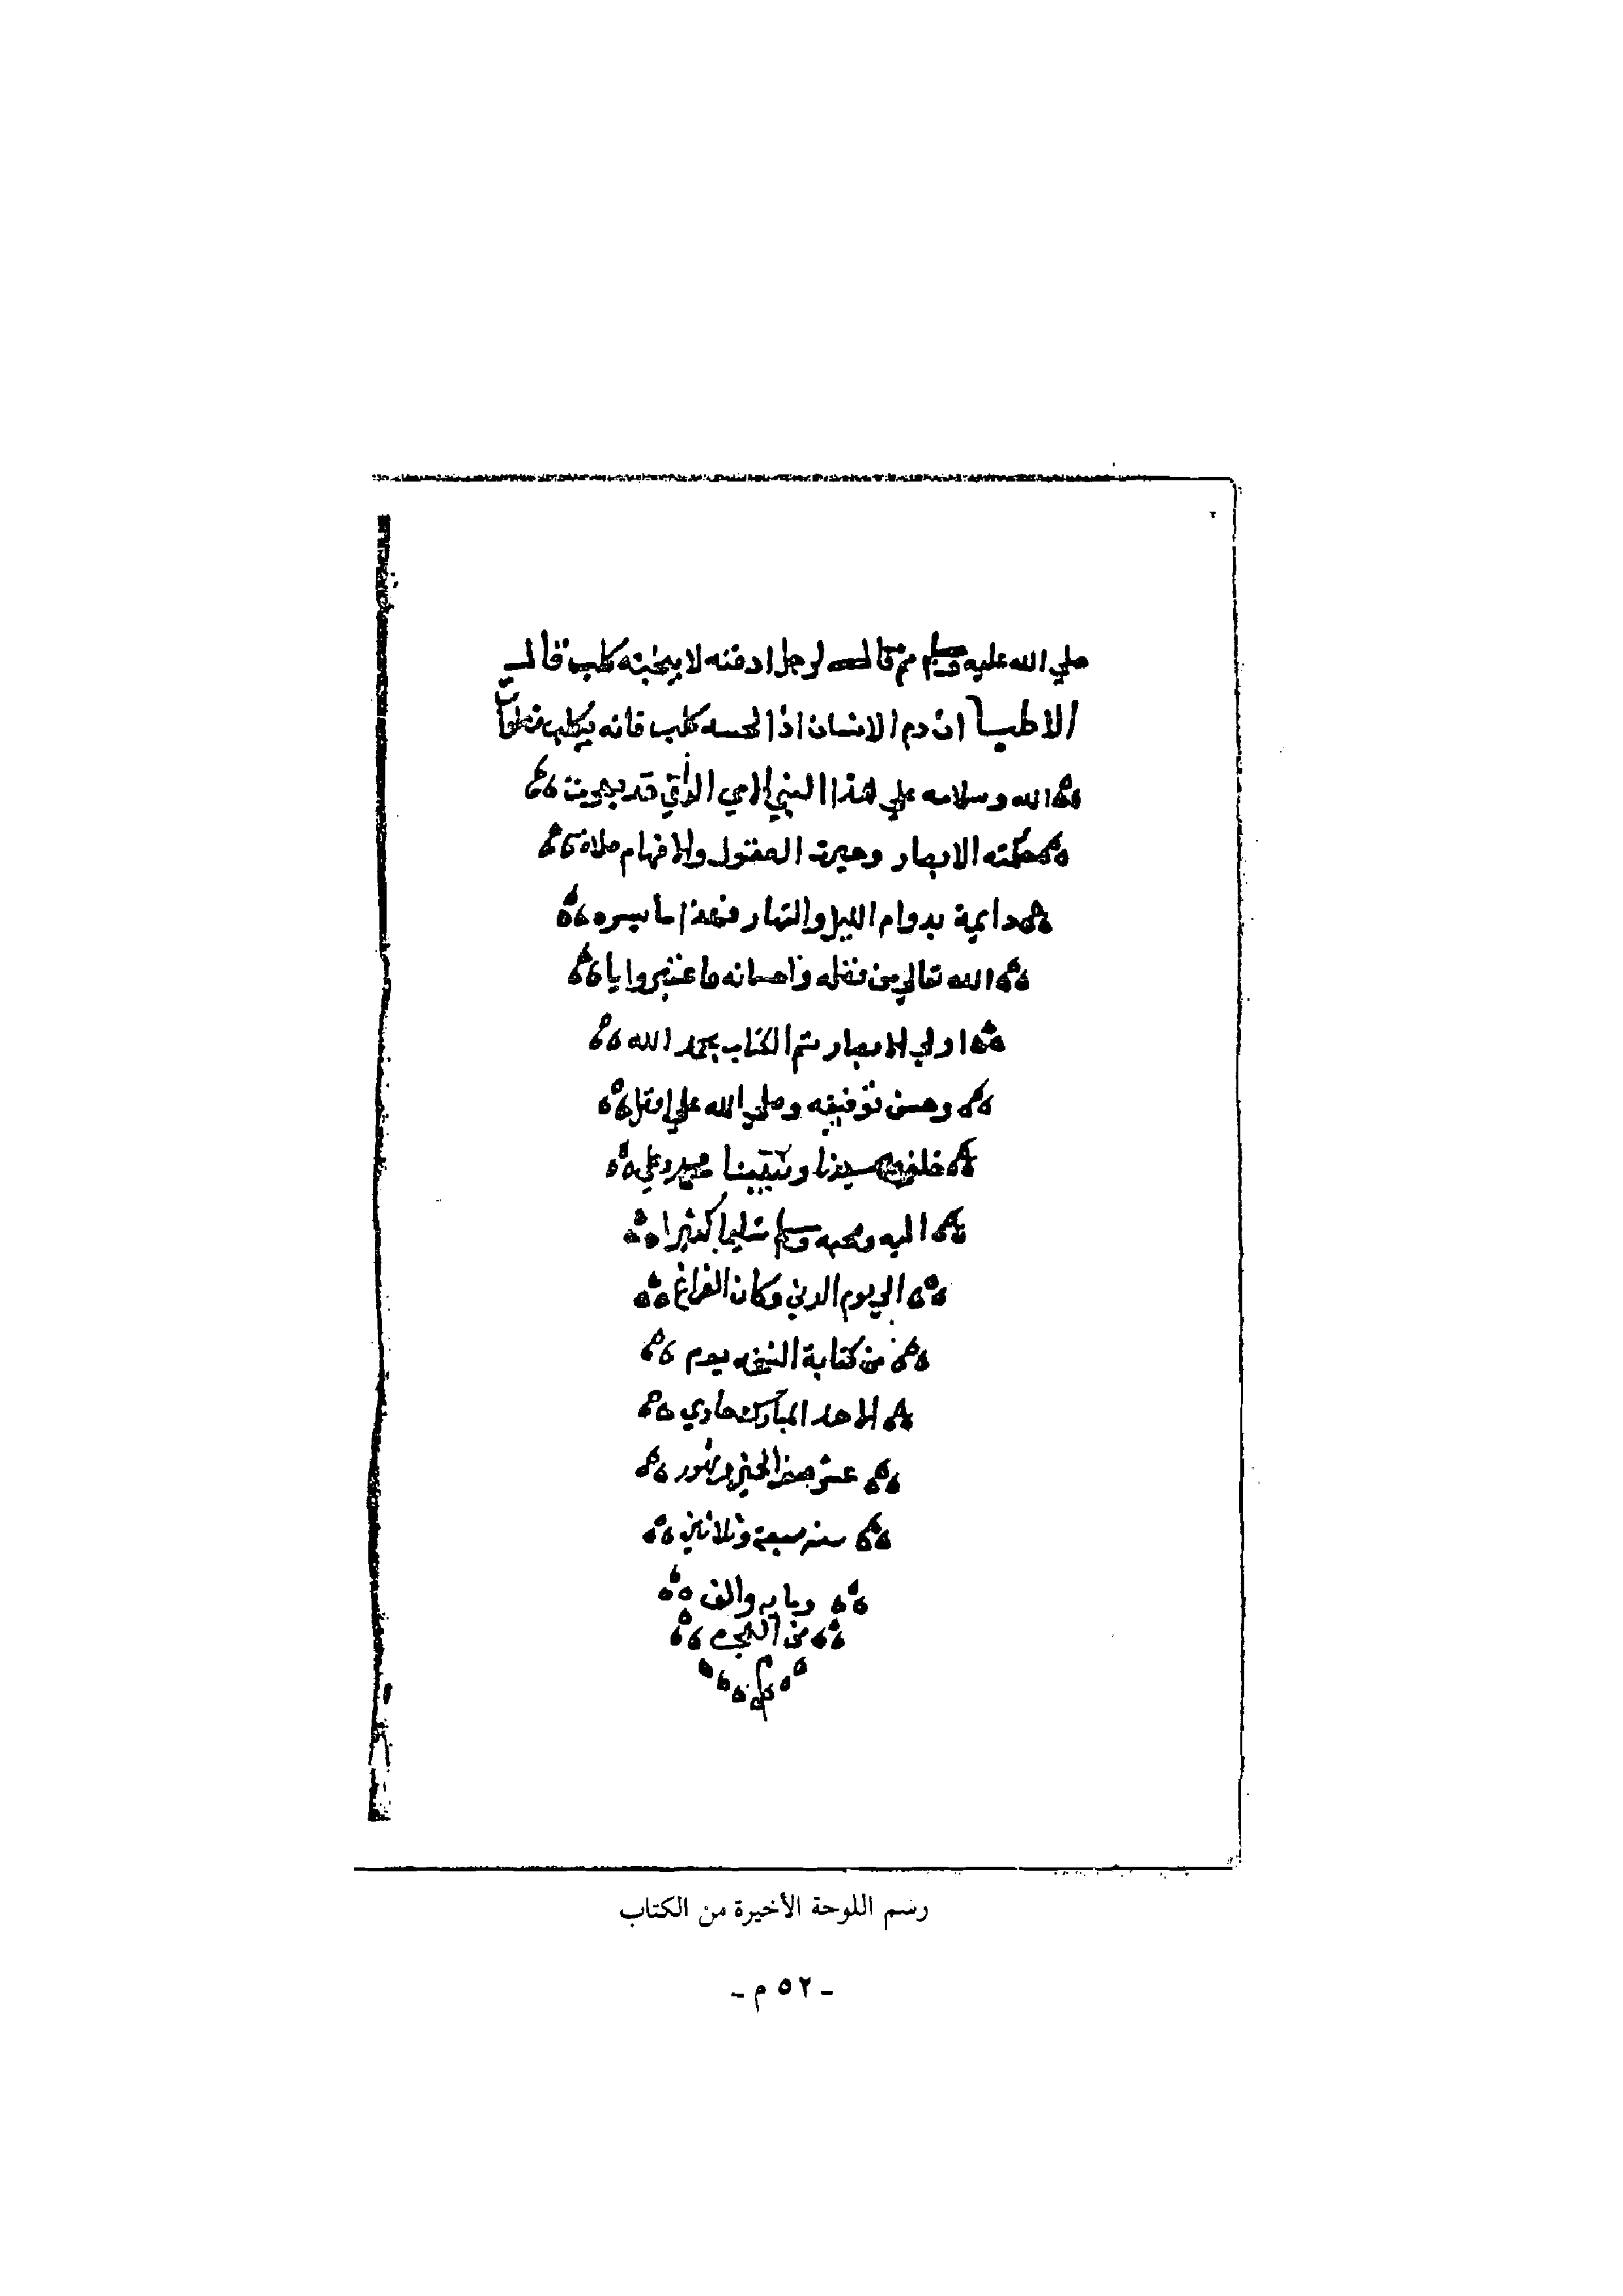 صلي الله عليه وسلم ثم قال لرجل ادفنه لا يبحثه كلب قال
الاطبا ان دم الانسان اذا لحسه كلب فانه يكلب فصلوات
الله وسلامه علي هذا النبي الامي الذي قد بهرت
حكمته الابصار وحيرت العقول والافهام صلاة
دايمة بدوام الليل والنهار فهذا ما يسره
الله تعالي من فضله واحسانه فاعتبروا يا
اولي الابصار تم الكتاب بحمد الله
وحسن توفيقه وصلي الله علي افضل
خلقه سيدنا ونبينا محمد وعلي
اليه وصحبه وسلم تسليما كثيرا
الي يوم الدين وكان الفراغ
من كتابة النسخه يوم
الاحد المبارك حادي
عشر صفر الخير
سنه سبعة وثلاثين
ومايه والف
من الهجره
رسم اللوحة الأخيرة من الكتاب
ـ ٥٢ م ـ